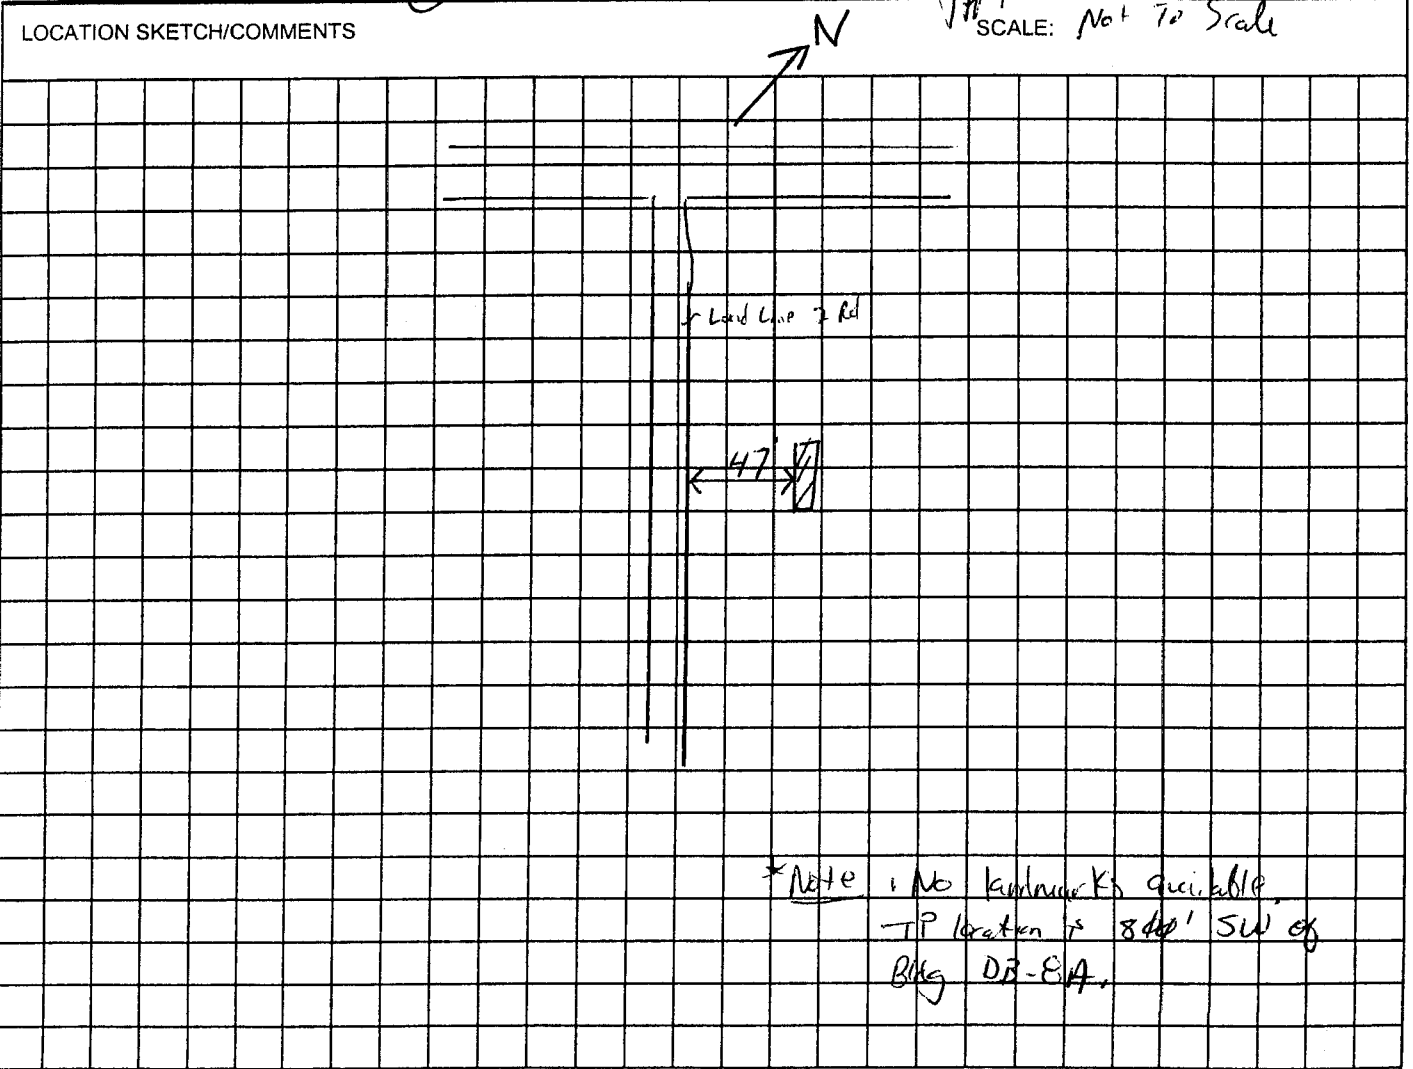 LOCATION SKETCH/COMMENTS
SCALE: Not To Scale
N
Load Line 2 Rd
47
*Note: No landmarks available.
TP location is 800' SW of
Bldg DB-8A.